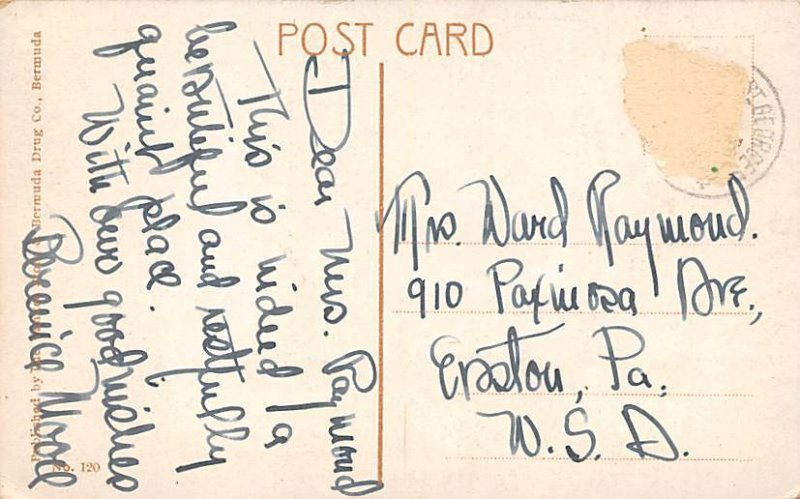 POST CARD
Dear Mrs. Raymond
This is indeed a
beautiful and restfully
quaint place.
With good wishes
Berenice Moore
Mrs. Ward Raymond.
910 Paxinosa Ave.,
Easton, Pa.
U. S. A.
Published by Bermuda Drug Co., Bermuda
No. 120
ST. GEORGE